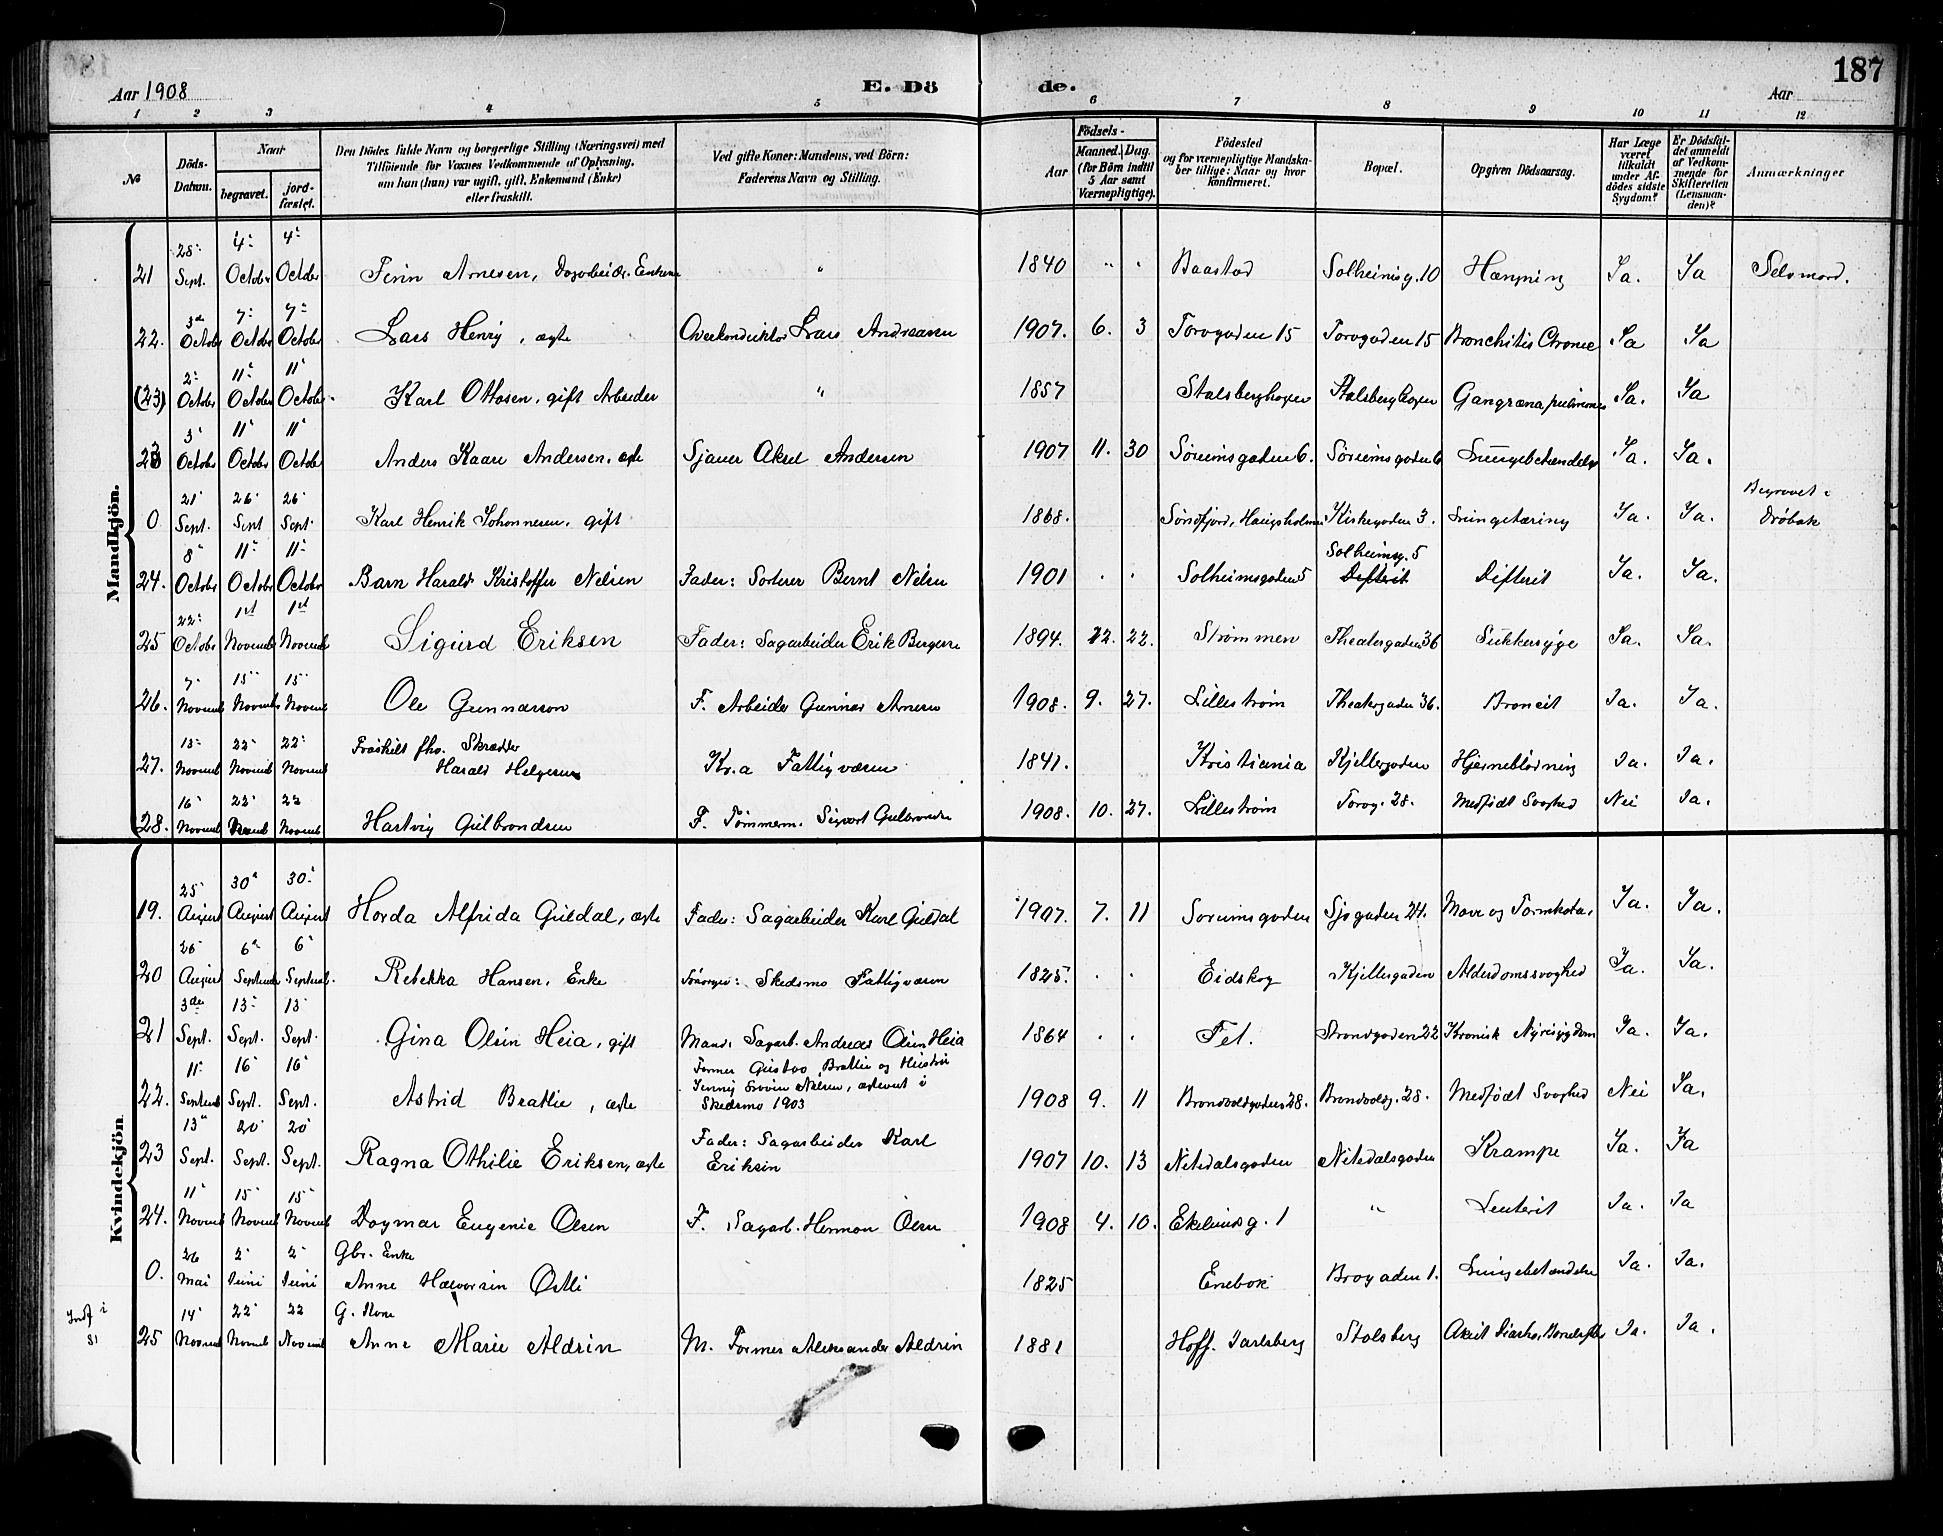 187
Aar 1908
E. Dö
de.
Aar
1 2 3 4 5 6 7 8 9 10 11 12
№
Döds-
Datum.
Naar
begravet.
jord-
fæstet.
Den Dödes fulde Navn og borgerlige Stilling (Næringsvei) med
Tilföiende for Voxnes Vedkommende af Oplysning,
om hun (han) var ugift, gift, Enkemand (Enke)
eller fraskilt.
Ved gifte Koner: Mandens, ved Börn:
Faderens Navn og Stilling.
Födsels-
Aar
Maaned. Dag.
(for Börn indtil
5 Aar samt
Værnepligtige).
Födested
og for værnepligtige Mandska-
ber tillige: Naar og hvor
konfirmeret.
Bopæl.
Opgiven Dödsaarsag.
Har Læge
været
tilkaldt
under Af-
dödes sidste
Sygdom?
Er Dödsfal-
det anmeldt
af Vedkom-
mende for
Skifteretten
(Lensman-
den)?
Anmærkninger
Mandkjön.
21 28 Sept. 4 October 4 October Arnesen, 1840 Baastad Solheimsg. 10 Hængning Ja. Ja Selvmord.
22. 3 October 7 October 7 October Lars Henry, ægte Overkonduktør Lars Andreasen 1907. 6. 3 Torvgaden 15 Torvgaden 15 Bronchitis Ja Ja
(23) 2 October 11 October 11 October Karl Ottosen, gift Arbeider " 1857 Stalsberghagen Stalsberghagen Gangræna Ja. Ja
23 3 October 11 October 11 October Anders Kaare Andersen, ægte Sjauer Aksel Andersen 1907 11. 30 Sørumsgaden 6. Sørumsgaden 6 Lungebetændelse Ja. Ja.
0 21 Sept. 26 Sept 26 Sept. Karl Henrik Johannesen, gift 1868. Kirkegaden 3. Lungetæring Ja. Ja. Begravet i
Drøbak
24. 8 October 11 October 11 October Barn Harald Kristoffer Nelsen Fader: Bernt Nelsen 1901 Solheimsgaden 5 Solheimsg. 5 Difterit Difterit Ja. Ja.
25 22 October 1st Novemb 1st Novemb Sigurd Eriksen Fader: Sagarbeider Erik 1894. 12. 22. Strømmen Theatergaden 36 Sukkersyge Ja. Ja.
26. 7 Novemb 15 Novemb 15 Novemb Ole Gunnarson F. Arbeider Gunnar Arnesen 1908. 9. 27. Lillestrøm Theatergaden 36. Ja. Ja.
27. 13 Novemb 22 Novemb 22 Novemb Fraskilt fhv. Skrædder
Harald Helgesen Fattigvæsen 1841. Kristiania Kjellergaden Hjerneblødning Ja. Ja.
28. 16 Novemb 22 Novemb 22 Novemb Hartvig Gulbrandsen F. Tømmerm. Sigvart Gulbrandsen 1908. 10. 27. Lillestrøm Torvg. 28. Medfødt Svaghed Nei Ja.
Kvindekjön.
19. 25 August 30 August 30 August Horda Alfrida Guldal, ægte Fader: Sagarbeider Karl Guldal 1907. 7. 11 Sørumsgaden 24. Mave og Tarmkatar. Ja. Ja.
20 26 August 6 Septemb 6 Septemb. Rebekka Hansen, Enke Forsorger: Skedsmo Fattigvæsen 1825. Eidskog Kjellergaden Alderdomssvaghed Ja. Ja.
21 3die Sept. 13 Sept. 13 Sept. Gina Olsen Heia, gift Mand: Sagarb. Andreas Olsen Heia 1864 Fet. Strandgaden 22 Kronisk Nyresygdom Ja. Ja.
22. 11 Septemb 16 Sept. 16 Sept. Astrid Bratlie, ægte Former Gustav Bratlie og Hustru
Jenny Nelsen, i
Skedsmo 1903 1908 9. 11 Brandvoldgaden 28. Brandvoldg. 28. Medfødt Svaghed Nei Ja.
23 13 Sept. 20 Sept. 20 Sept. Ragna Othilie Eriksen, ægte Fader: Sagarbeider Karl
Eriksen 1907 10. 13 Nitedalsgaden Nitedalsgaden Krampe Ja. Ja
24. 11 Novemb 15 Novemb 15 Novemb Dagmar Eugenie Olsen F. Sagarb. Herman Olsen 1908 4. 10. g. 1 " Ja. Ja
0. 26 Mai 2 Juni 2 Juni Gbr. Enke
Anne Halvorsen Østli 1825 Enebak Brogaden 1. Lungebetændelse Ja. Ja.
25 14 Novemb 22 Novemb 22 Novemb G. Kone
Anne Marie Aldrin M. Former Aleksander Aldrin 1881 Hoff. Jarlsberg Stalsberg Ja. Ja.